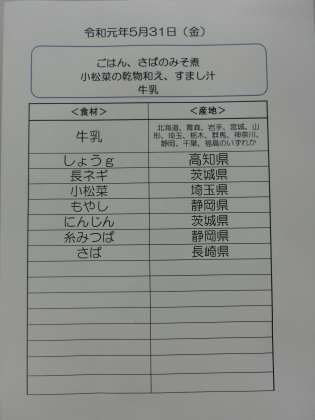 令和元年5月31日（金）
ごはん、さばのみそ煮
小松菜の乾物和え、すまし汁
牛乳
＜食材＞ ＜産地＞
牛乳 北海道、青森、岩手、宮城、山
形、埼玉、栃木、群馬、神奈川、
静岡、千葉、福島のいずれか
しょうg 高知県
長ネギ 茨城県
小松菜 埼玉県
もやし 静岡県
にんじん 茨城県
糸みつば 静岡県
さば 長崎県